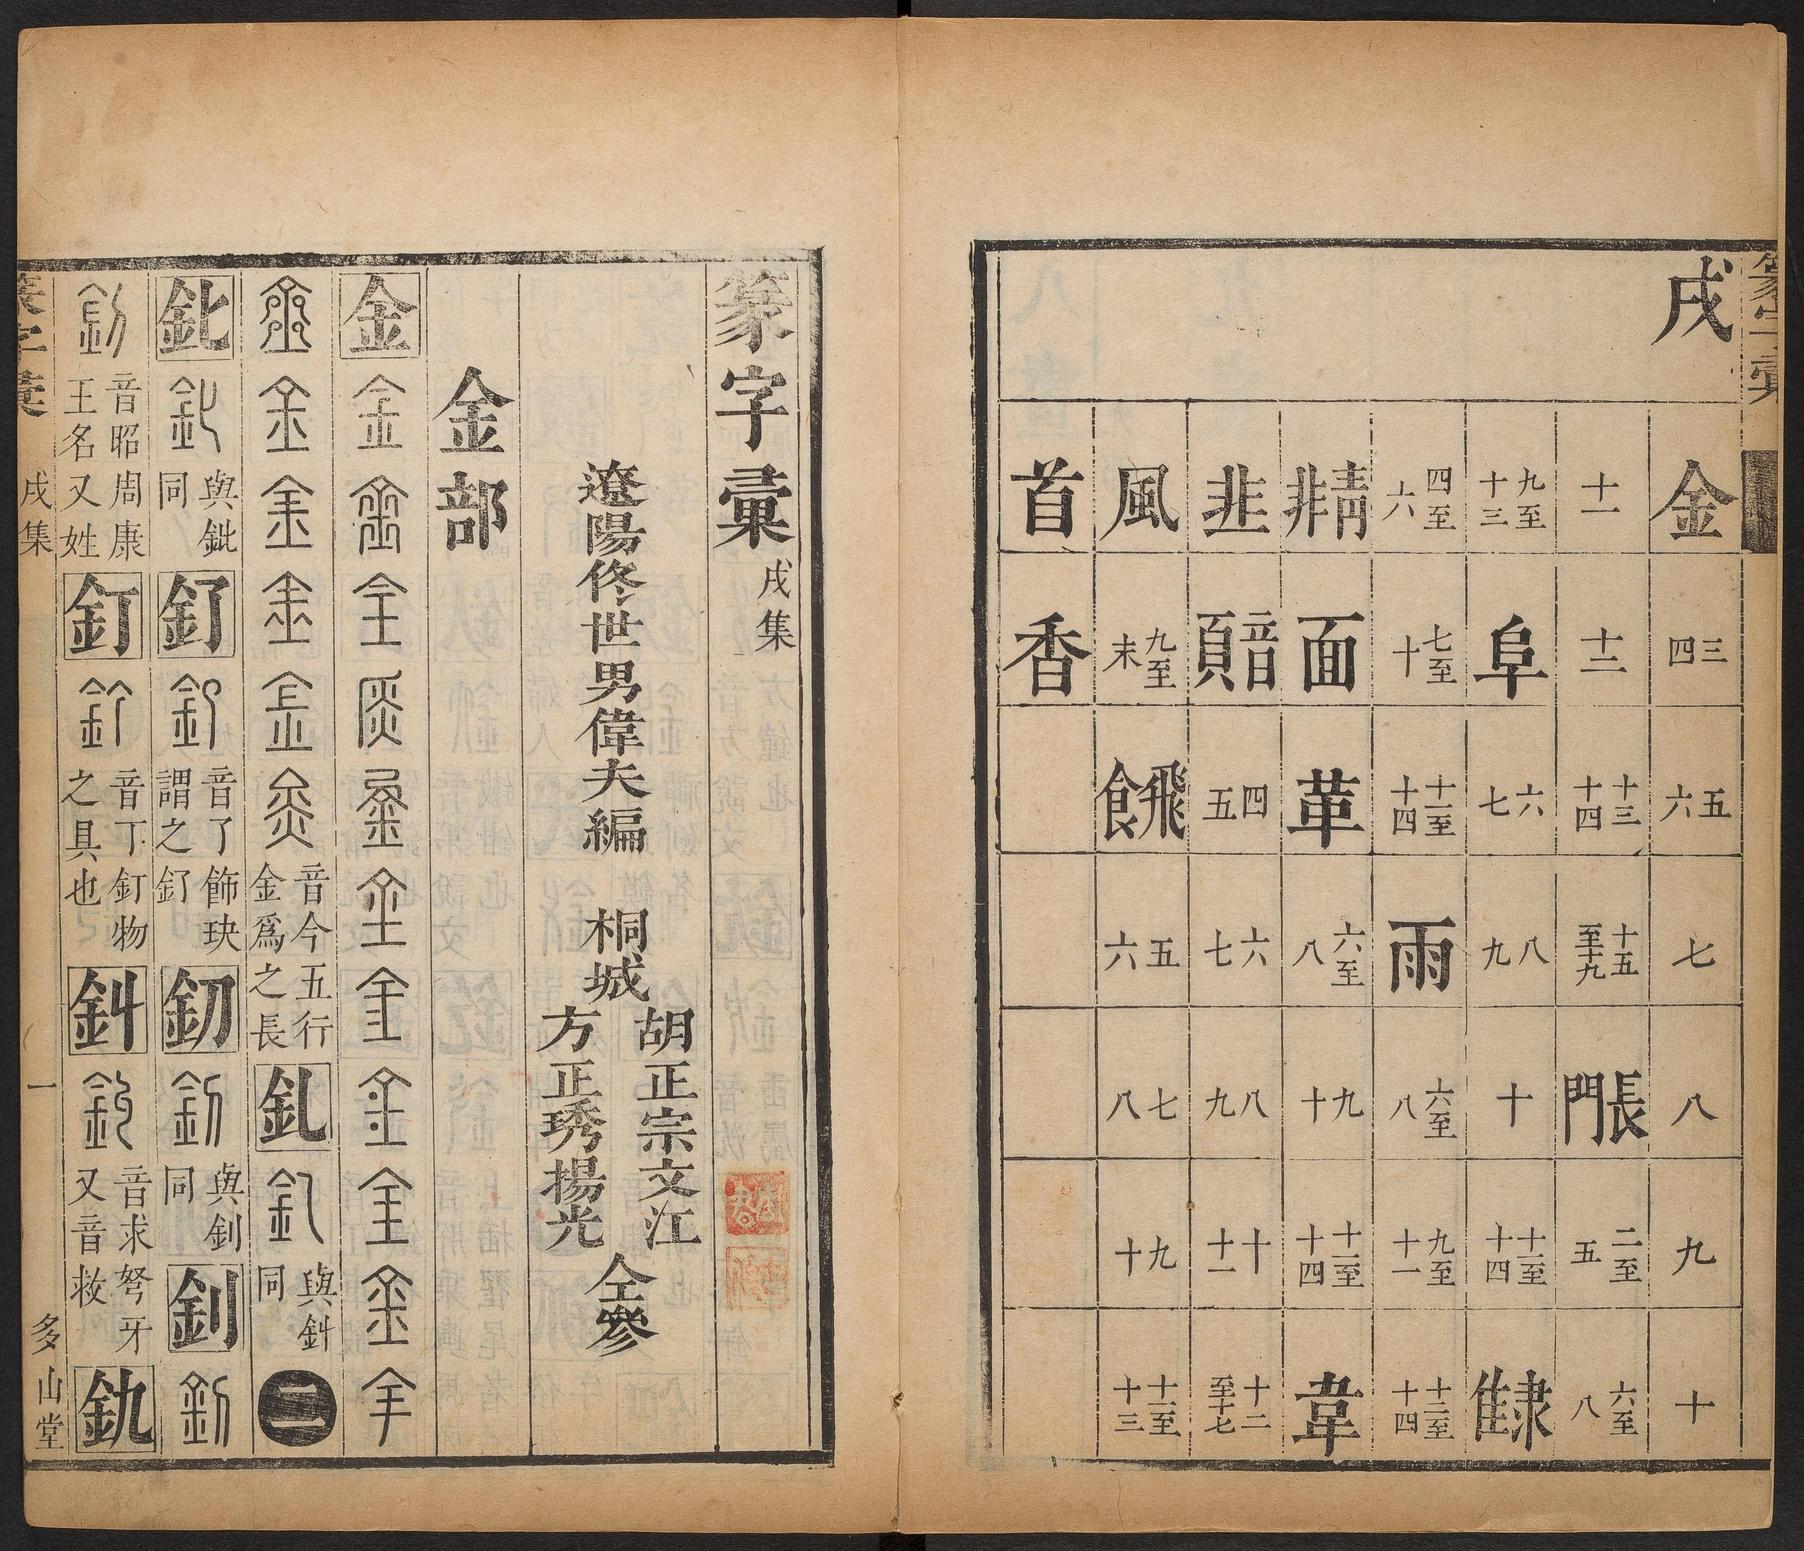 篆字彙
戌
金 三四 五六 七 八 九 十
十一 十二 十三十四 十五至十九 長門 二至五 六至八
九至十三 阜 六七 八九 十 十一至十四 隶隹
四至六 七至十 十一至十四 雨 六至八 九至十一 十二至十四
青非 面 革 六至八 九十 十一至十四 韋
韭 音頁 四五 六七 八九 十十一 十二至十七
風 九至末 飛食 五六 七八 九十 十一至十三
首 香
篆字彙 戌集
遼陽佟世男偉夫編 桐城 胡正宗文江 方正琇揚光 仝參
金部
金
音今五行金爲之長 釓 與 同 二
與鈚同 釕 音了飾玦謂之釕 釼 與釗同 釗
音昭周康王名又姓 釘 音丁釘物之具也 音求弩牙又音救 釚
篆字彙 戌集 一 多山堂